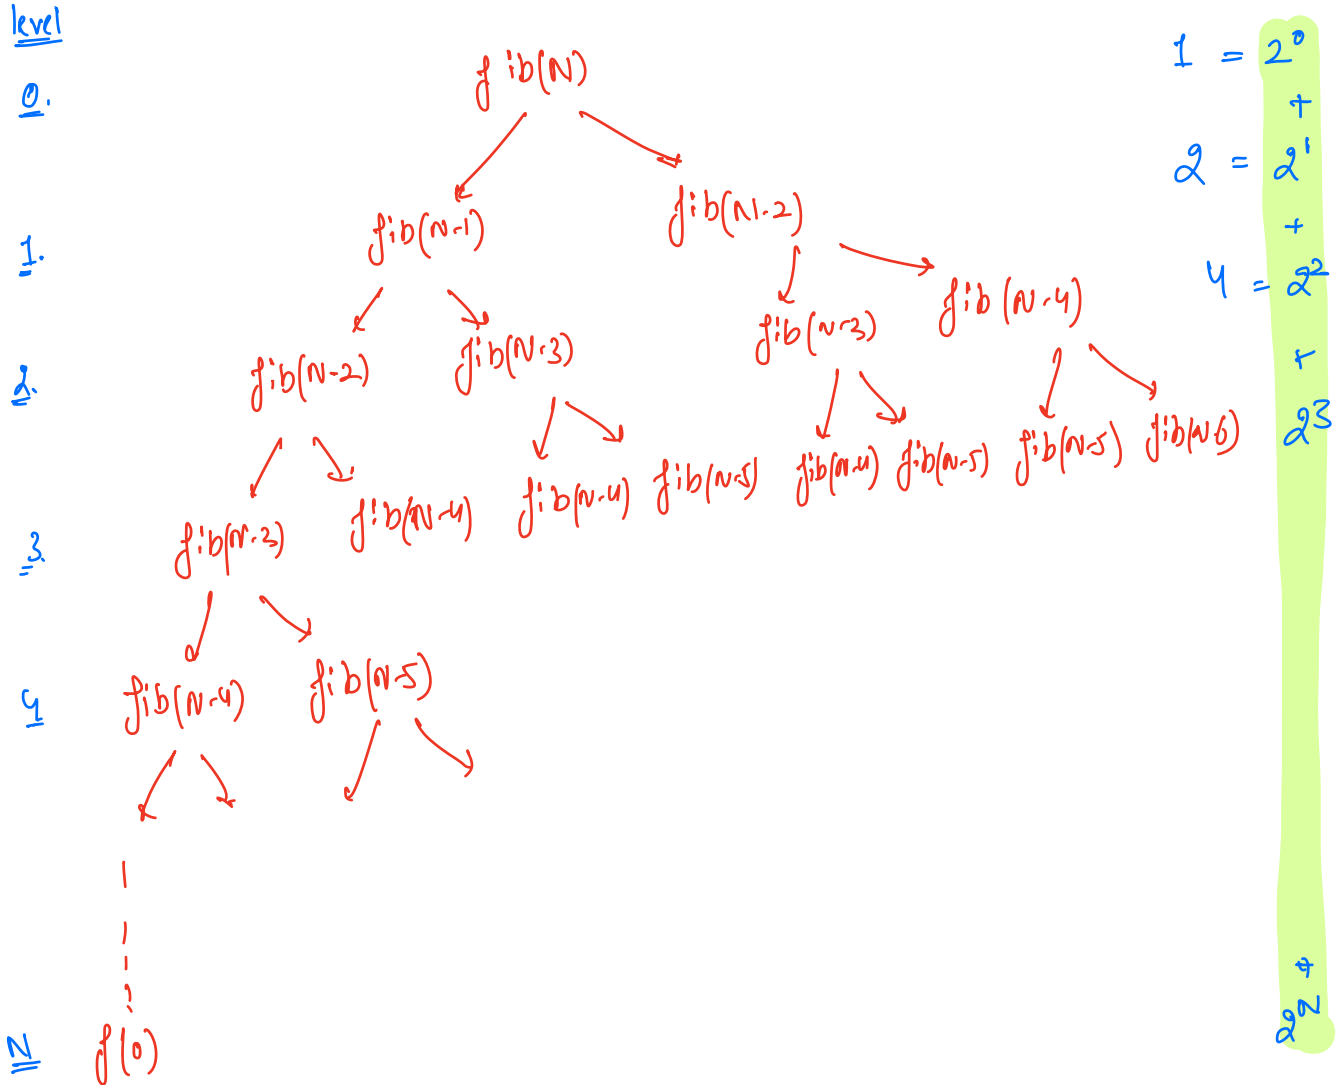 level
0. fib(N) 1 = 2⁰
+
1. fib(N-1) fib(N-2) 2 = 2¹
+
2. fib(N-2) fib(N-3) fib(N-3) fib(N-4) 4 = 2²
+
3. fib(N-3) fib(N-4) fib(N-4) fib(N-5) fib(N-4) fib(N-5) fib(N-5) fib(N-6) 2³
4 fib(N-4) fib(N-5)
+
N f(0) 2ᴺ